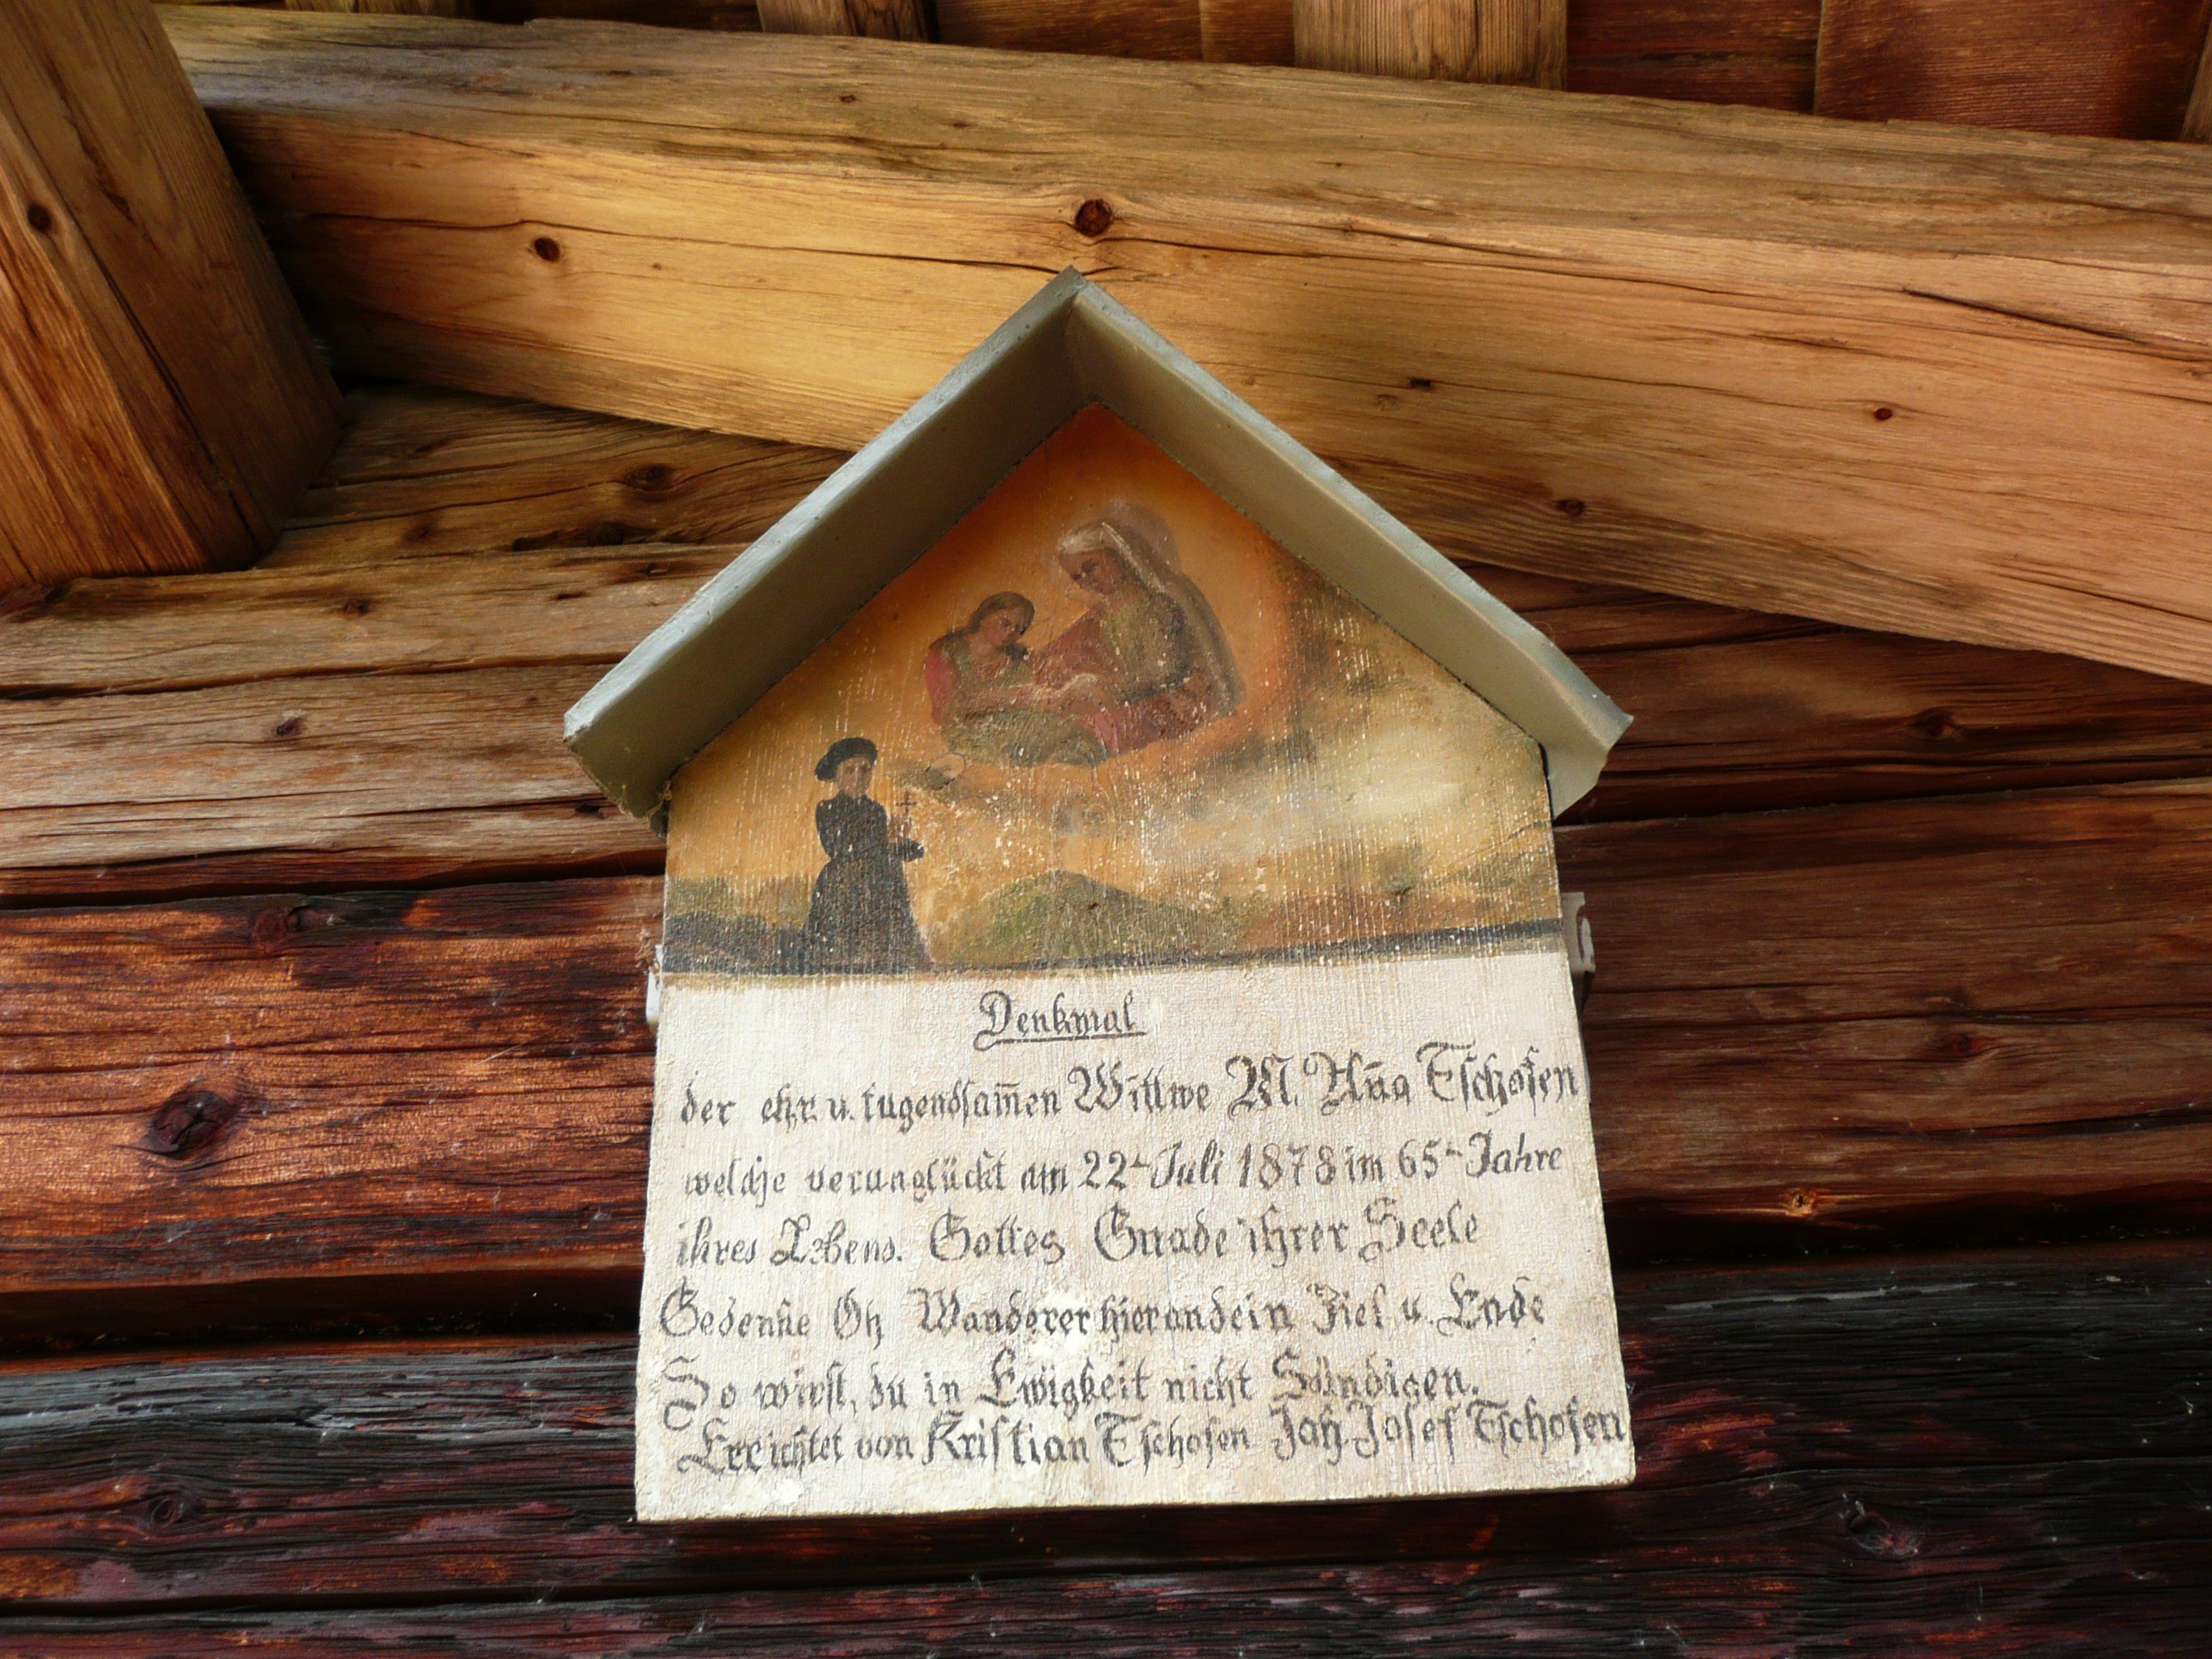 Denkmal
der ehr. u. tugendsam̅en Wittwe M. An̅a Tschofen
welche verunglückt am 22ᵗ Juli 1878 im 65ᵗ Jahre
ihres Lebens. Gottes Gnade ihrer Seele
Gedenke Oh Wanderer hier an dein Ziel u. Ende
So wirst, du in Ewigkeit nicht Sündigen.
Errichtet von Kristian Tschofen Joh. Josef Tschofen